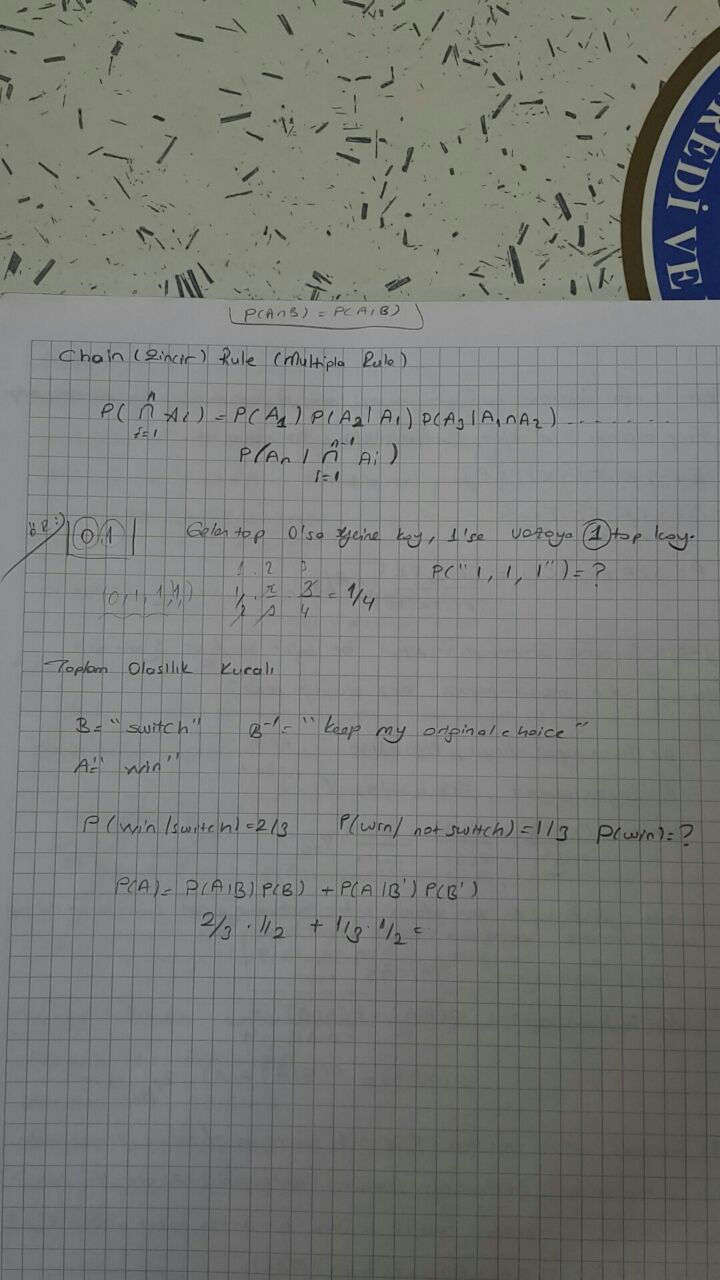 REDİ VE
P(A∩B) = P(A,B)
Chain (Zincir) Rule (Multipla Rule)
P(⋂ⁿᵢ₌₁ Aᵢ) = P(A₁) P(A₂|A₁) P(A₃|A₁∩A₂) ..........
P(Aₙ | ⋂ⁿ⁻¹ᵢ₌₁ Aᵢ)
0 1 Gelen top 0'sa yerine koy, 1'se vazoya 1 top koy.
1. 2 3 P("1, 1, 1") = ?
(0,1,1,1,) 1/2 . 2/3 . 3/4 = 1/4
Toplam Olasılık Kuralı
B = "switch" B⁻¹ = "keep my original choice"
A = "win"
P(win/switch) = 2/3 P(win/not switch) = 1/3 P(win) = ?
P(A) = P(A|B) P(B) + P(A|B') P(B')
2/3 . 1/2 + 1/3 . 1/2 =